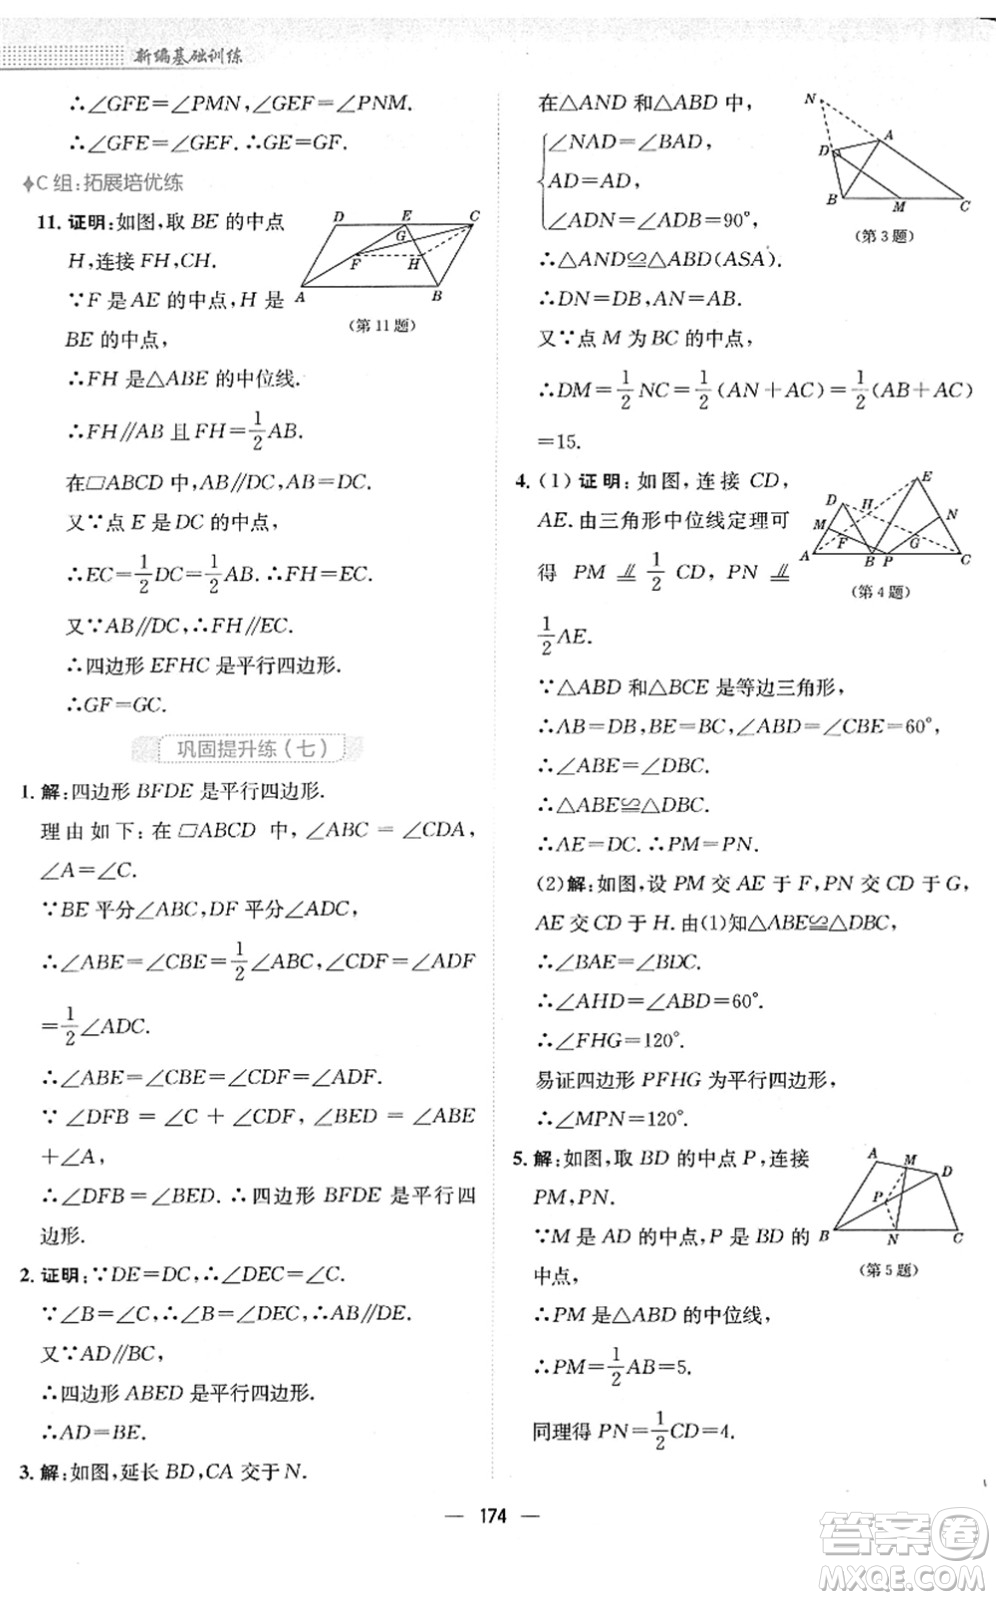 新编基础训练
∴∠GFE=∠PMN,∠GEF=∠PNM.
∴∠GFE=∠GEF.∴GE=GF.
C 组:拓展培优练
11. 证明:如图,取 BE 的中点
H,连接 FH,CH.
∵F 是 AE 的中点,H 是
BE 的中点,
∴FH 是△ABE 的中位线.
∴FH∥AB 且 FH=1/2AB.
在▱ABCD 中,AB∥DC,AB=DC.
又∵点 E 是 DC 的中点,
∴EC=1/2DC=1/2AB.∴FH=EC.
又∵AB∥DC,∴FH∥EC.
∴四边形 EFHC 是平行四边形.
∴GF=GC.
D E C G F H A B
(第 11 题)
巩固提升练(七)
1. 解:四边形 BFDE 是平行四边形.
理由如下:在▱ABCD 中,∠ABC=∠CDA,
∠A=∠C.
∵BE 平分∠ABC,DF 平分∠ADC,
∴∠ABE=∠CBE=1/2∠ABC,∠CDF=∠ADF
=1/2∠ADC.
∴∠ABE=∠CBE=∠CDF=∠ADF.
∵∠DFB=∠C+∠CDF,∠BED=∠ABE
+∠A,
∴∠DFB=∠BED.∴四边形 BFDE 是平行四
边形.
2. 证明:∵DE=DC,∴∠DEC=∠C.
∵∠B=∠C,∴∠B=∠DEC.∴AB∥DE.
又∵AD∥BC,
∴四边形 ABED 是平行四边形.
∴AD=BE.
3. 解:如图,延长 BD,CA 交于 N.
在△AND 和△ABD 中,
∠NAD=∠BAD,
AD=AD,
∠ADN=∠ADB=90°,
∴△AND≌△ABD(ASA).
∴DN=DB,AN=AB.
又∵点 M 为 BC 的中点,
∴DM=1/2NC=1/2(AN+AC)=1/2(AB+AC)
=15.
N A D B M C
(第 3 题)
4. (1)证明:如图,连接 CD,
AE.由三角形中位线定理可
得 PM ∥= 1/2 CD,PN ∥=
1/2AE.
∵△ABD 和△BCE 是等边三角形,
∴AB=DB,BE=BC,∠ABD=∠CBE=60°,
∴∠ABE=∠DBC.
∴△ABE≌△DBC.
∴AE=DC.∴PM=PN.
(2)解:如图,设 PM 交 AE 于 F,PN 交 CD 于 G,
AE 交 CD 于 H.由(1)知△ABE≌△DBC,
∴∠BAE=∠BDC.
∴∠AHD=∠ABD=60°.
∴∠FHG=120°.
易证四边形 PFHG 为平行四边形,
∴∠MPN=120°.
E D H N M F G A B P C
(第 4 题)
5. 解:如图,取 BD 的中点 P,连接
PM,PN.
∵M 是 AD 的中点,P 是 BD 的
中点,
∴PM 是△ABD 的中位线,
∴PM=1/2AB=5.
同理得 PN=1/2CD=4.
A M D P B N C
(第 5 题)
— 174 —
答案卷
MXQE.COM